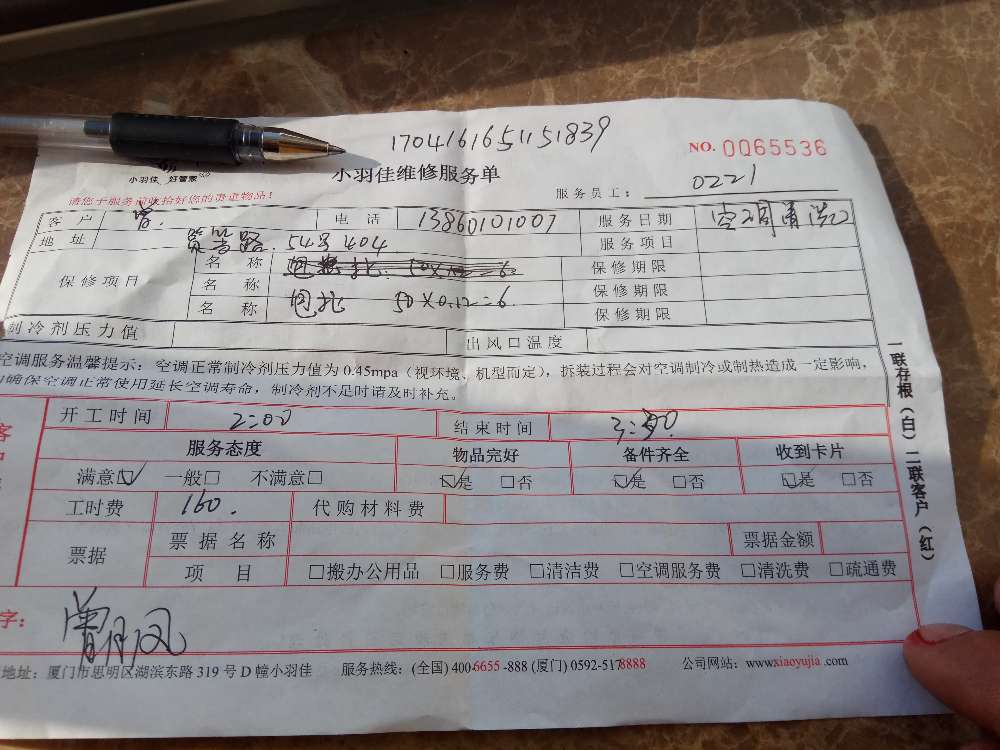 170416165151839
NO. 0065536
小羽佳 好管家
小羽佳维修服务单
服务员工： 0221
请您于服务前收拾好您的贵重物品！
客户 曾. 电话 13860101007 服务日期 空调清洗
地址 54号404 服务项目
保修项目 名称 保修期限
名称 保修期限
名称 50×0.12=6 保修期限
制冷剂压力值 出风口温度
空调服务温馨提示：空调正常制冷剂压力值为0.45mpa（视环境、机型而定），拆装过程会对空调制冷或制热造成一定影响，
确保空调正常使用延长空调寿命，制冷剂不足时请及时补充。
开工时间 2:00 结束时间
服务态度 物品完好 备件齐全 收到卡片
满意☑ 一般□ 不满意□ ☑是 □否 ☑是 □否 ☑是 □否
工时费 160. 代购材料费
票据 票据名称 票据金额
项目 □搬办公用品 □服务费 □清洁费 □空调服务费 □清洗费 □疏通费
字： 曾月凤
地址：厦门市思明区湖滨东路319号D幢小羽佳 服务热线：(全国) 400-6655-888 (厦门) 0592-5178888 公司网站：www.xiaoyujia.com
一联存根（白）二联客户（红）